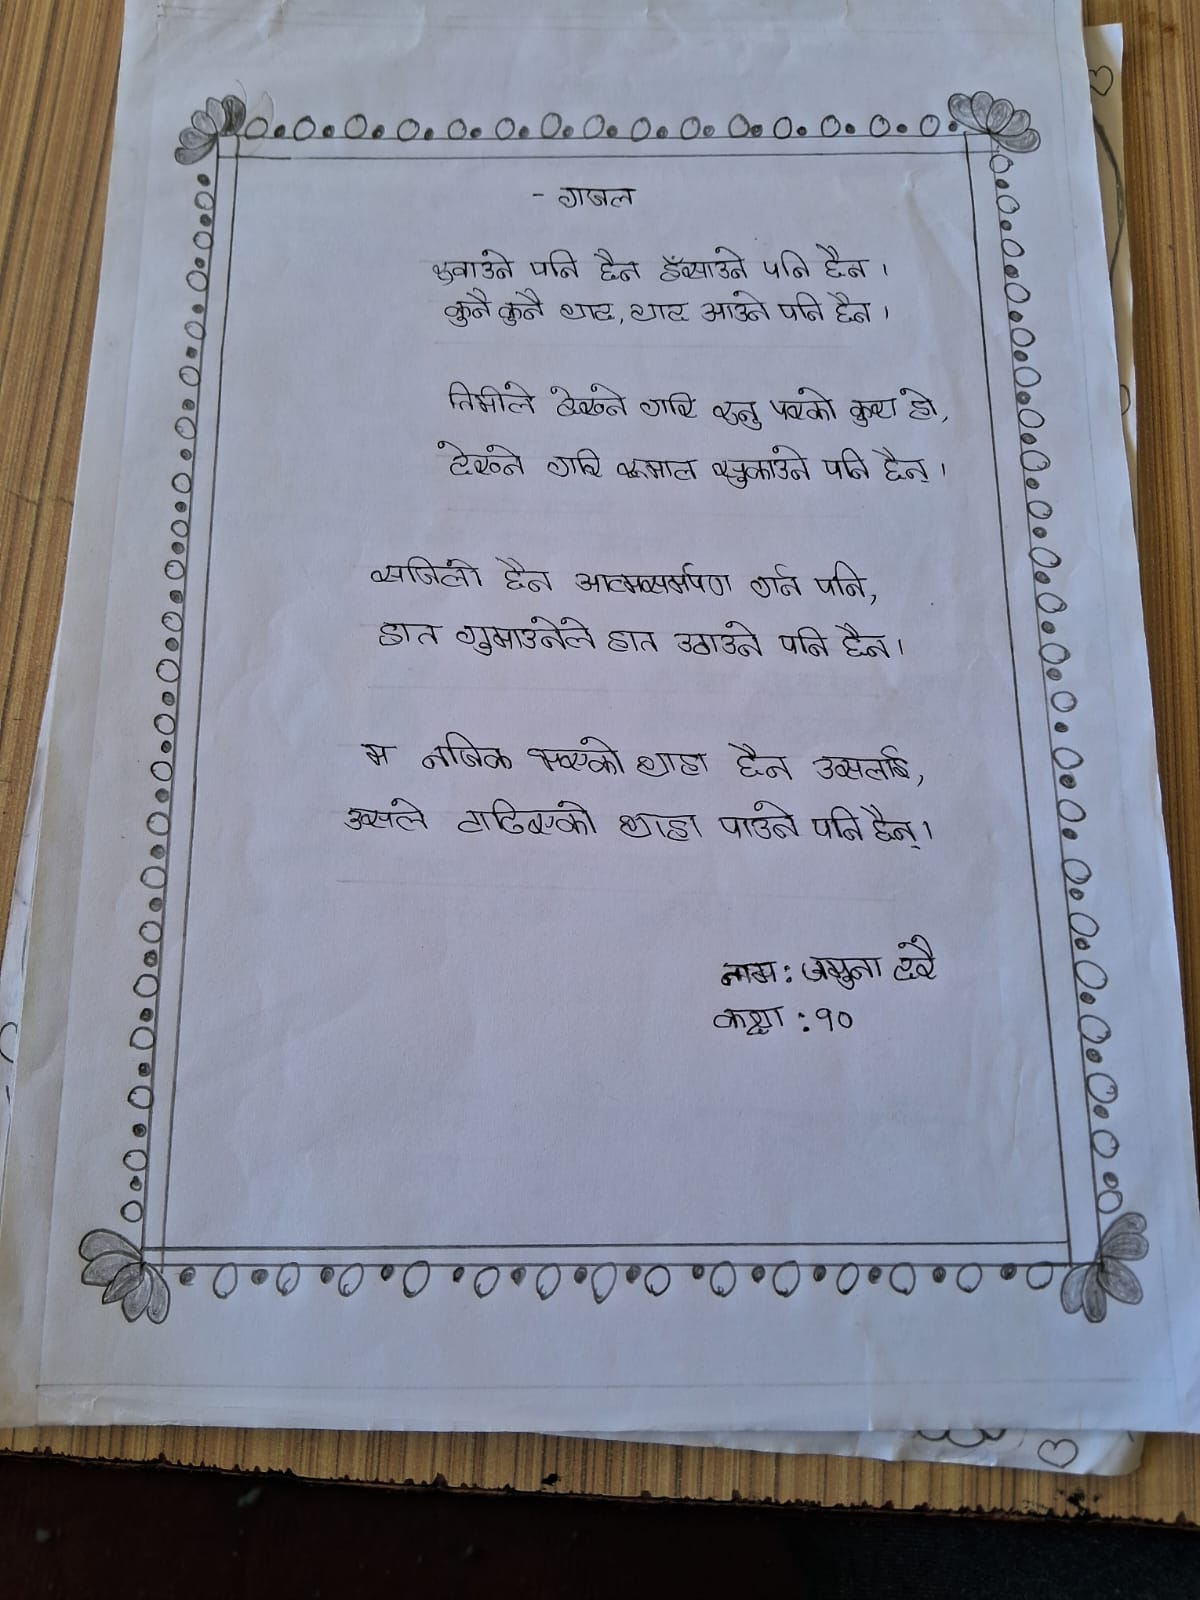 - गजल
रुवाउने पनि हैन हँसाउने पनि हैन ।
कुनै कुनै याद, याद आउने पनि हैन ।
तिमीले देख्ने गरि रुनु परको कुरा हो,
देख्ने गरि रूमाल सुकाउने पनि हैन् ।
सजिलो हैन आत्मसर्मपण गर्न पनि,
हात गुमाउनेले हात उठाउने पनि हैन ।
म नजिक भएको थाहा हैन उसलाई,
उसले टाढिएको थाहा पाउने पनि हैन् ।
नाम : जमुना दरै
कक्षा : १०